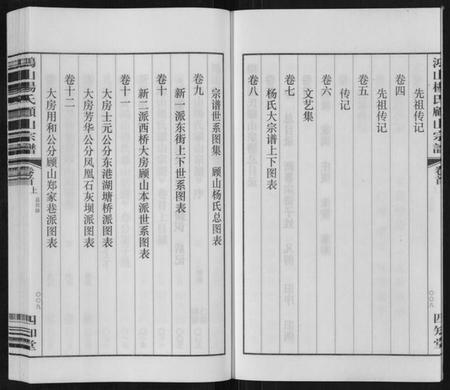 鸿山杨氏顾山宗谱
卷首
先祖传记
卷四
先祖传记
卷五
传记
卷六
文艺集
卷七
杨氏大宗谱上下图表
卷八
〇〇八
四知堂
宗谱世系图集 顾山杨氏总图表
卷九
新一派东街上下世系图表
卷十
新二派西桥大房顾山本派世系图表
卷十一
大房士元公分东港湖塘桥派图表
大房芳华公分凤凰石灰坝派图表
卷十二
大房用和公分顾山郑家巷派图表
鸿山杨氏顾山宗谱
卷首
上
〇〇九
四知堂